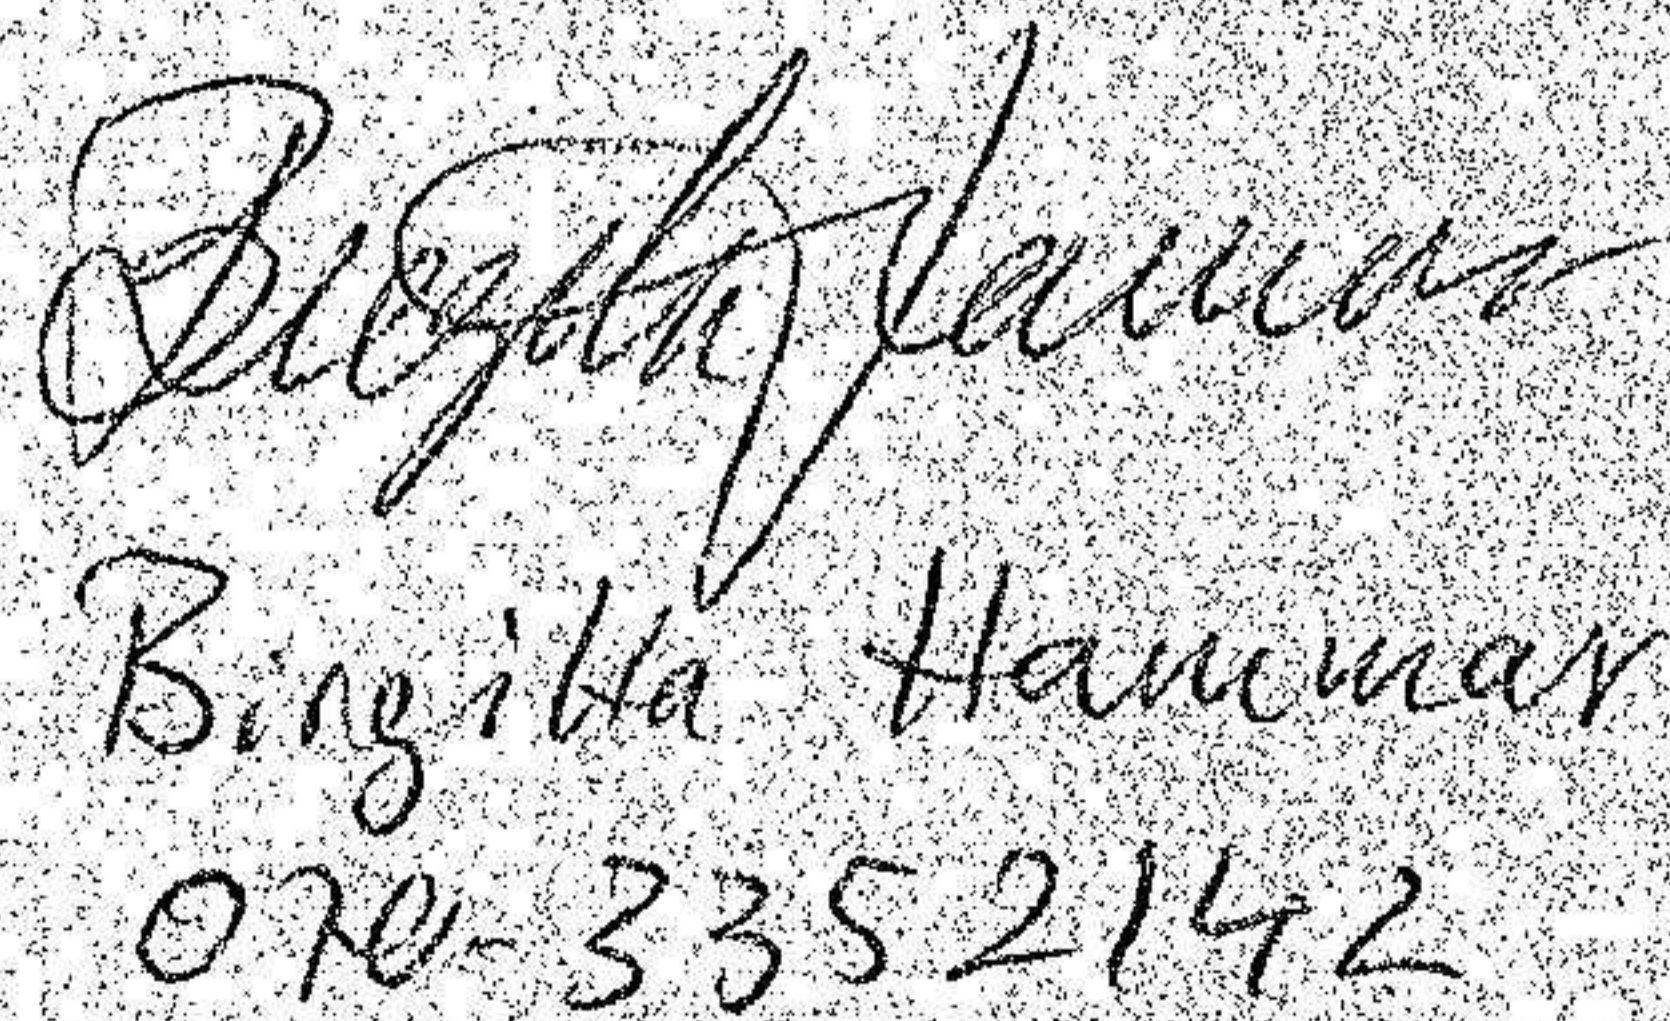 Birgitta Hammar
Birgitta Hammar
070-3352142